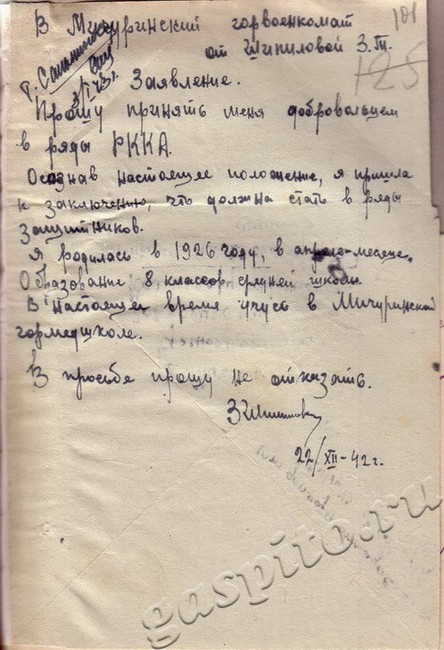 В Мичуринский горвоенкомат
от Шипиловой З.П.
101
125
Заявление.
Прошу принять меня добровольцем
в ряды РККА.
Осознав настоящее положение, я пришла
к заключению, что должна стать в ряды
защитников.
Я родилась в 1926 году, в апреле-месяце.
Образование 8 классов средней школы.
В настоящее время учусь в Мичуринской
гормедшколе.
В просьбе прошу не отказать.
22/XII-42 г.
gaspito.ru